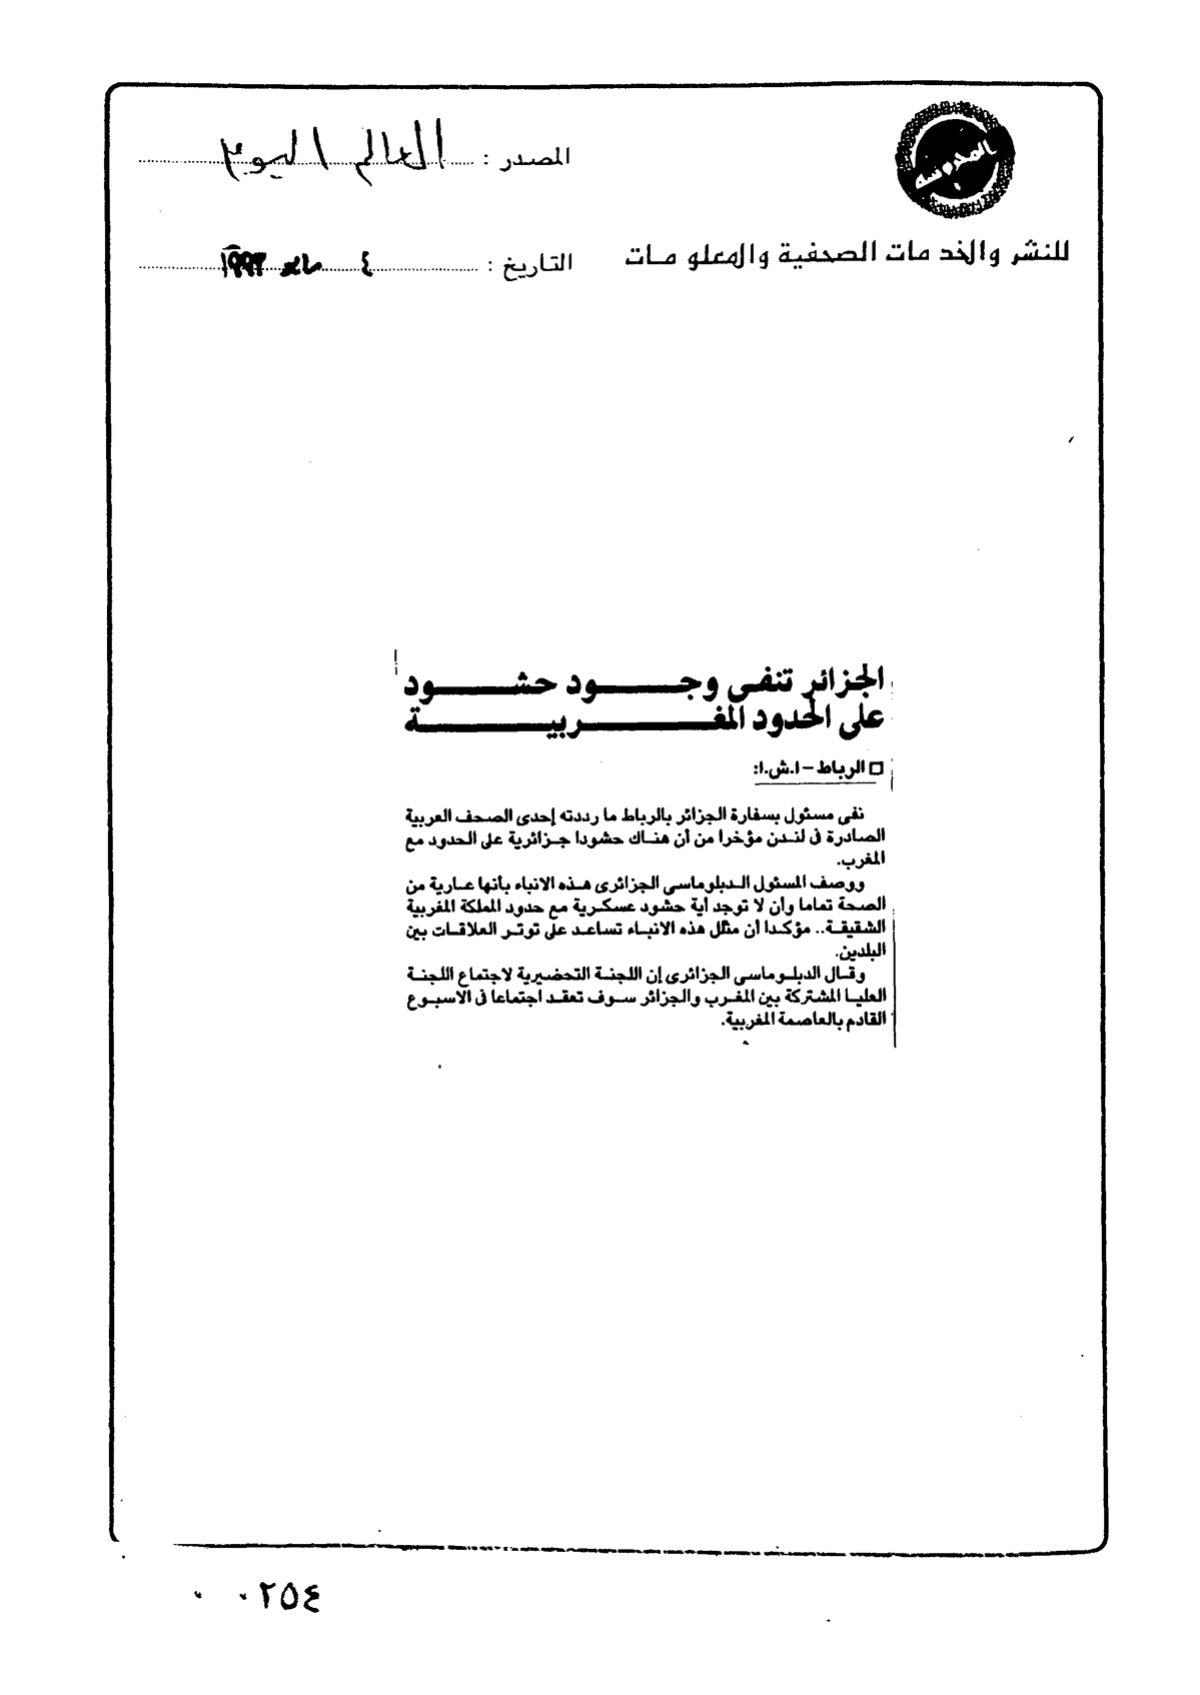 المصدر : العالم اليوم
للنشر والخدمات الصحفية والمعلومات
التاريخ : ٤ مايو ١٩٩٣
الجزائر تنفى وجود حشود
على الحدود المغربية
الرباط – ا.ش.ا:
نفى مسئول بسفارة الجزائر بالرباط ما رددته إحدى الصحف العربية
الصادرة فى لندن مؤخرا من أن هناك حشودا جزائرية على الحدود مع
المغرب.
ووصف المسئول الدبلوماسى الجزائرى هذه الانباء بأنها عارية من
الصحة تماما وأن لا توجد أية حشود عسكرية مع حدود المملكة المغربية
الشقيقة.. مؤكدا أن مثل هذه الانباء تساعد على توتر العلاقات بين
البلدين.
وقال الدبلوماسى الجزائرى إن اللجنة التحضيرية لاجتماع اللجنة
العليا المشتركة بين المغرب والجزائر سوف تعقد اجتماعا فى الاسبوع
القادم بالعاصمة المغربية.
٠ ٠٢٥٤